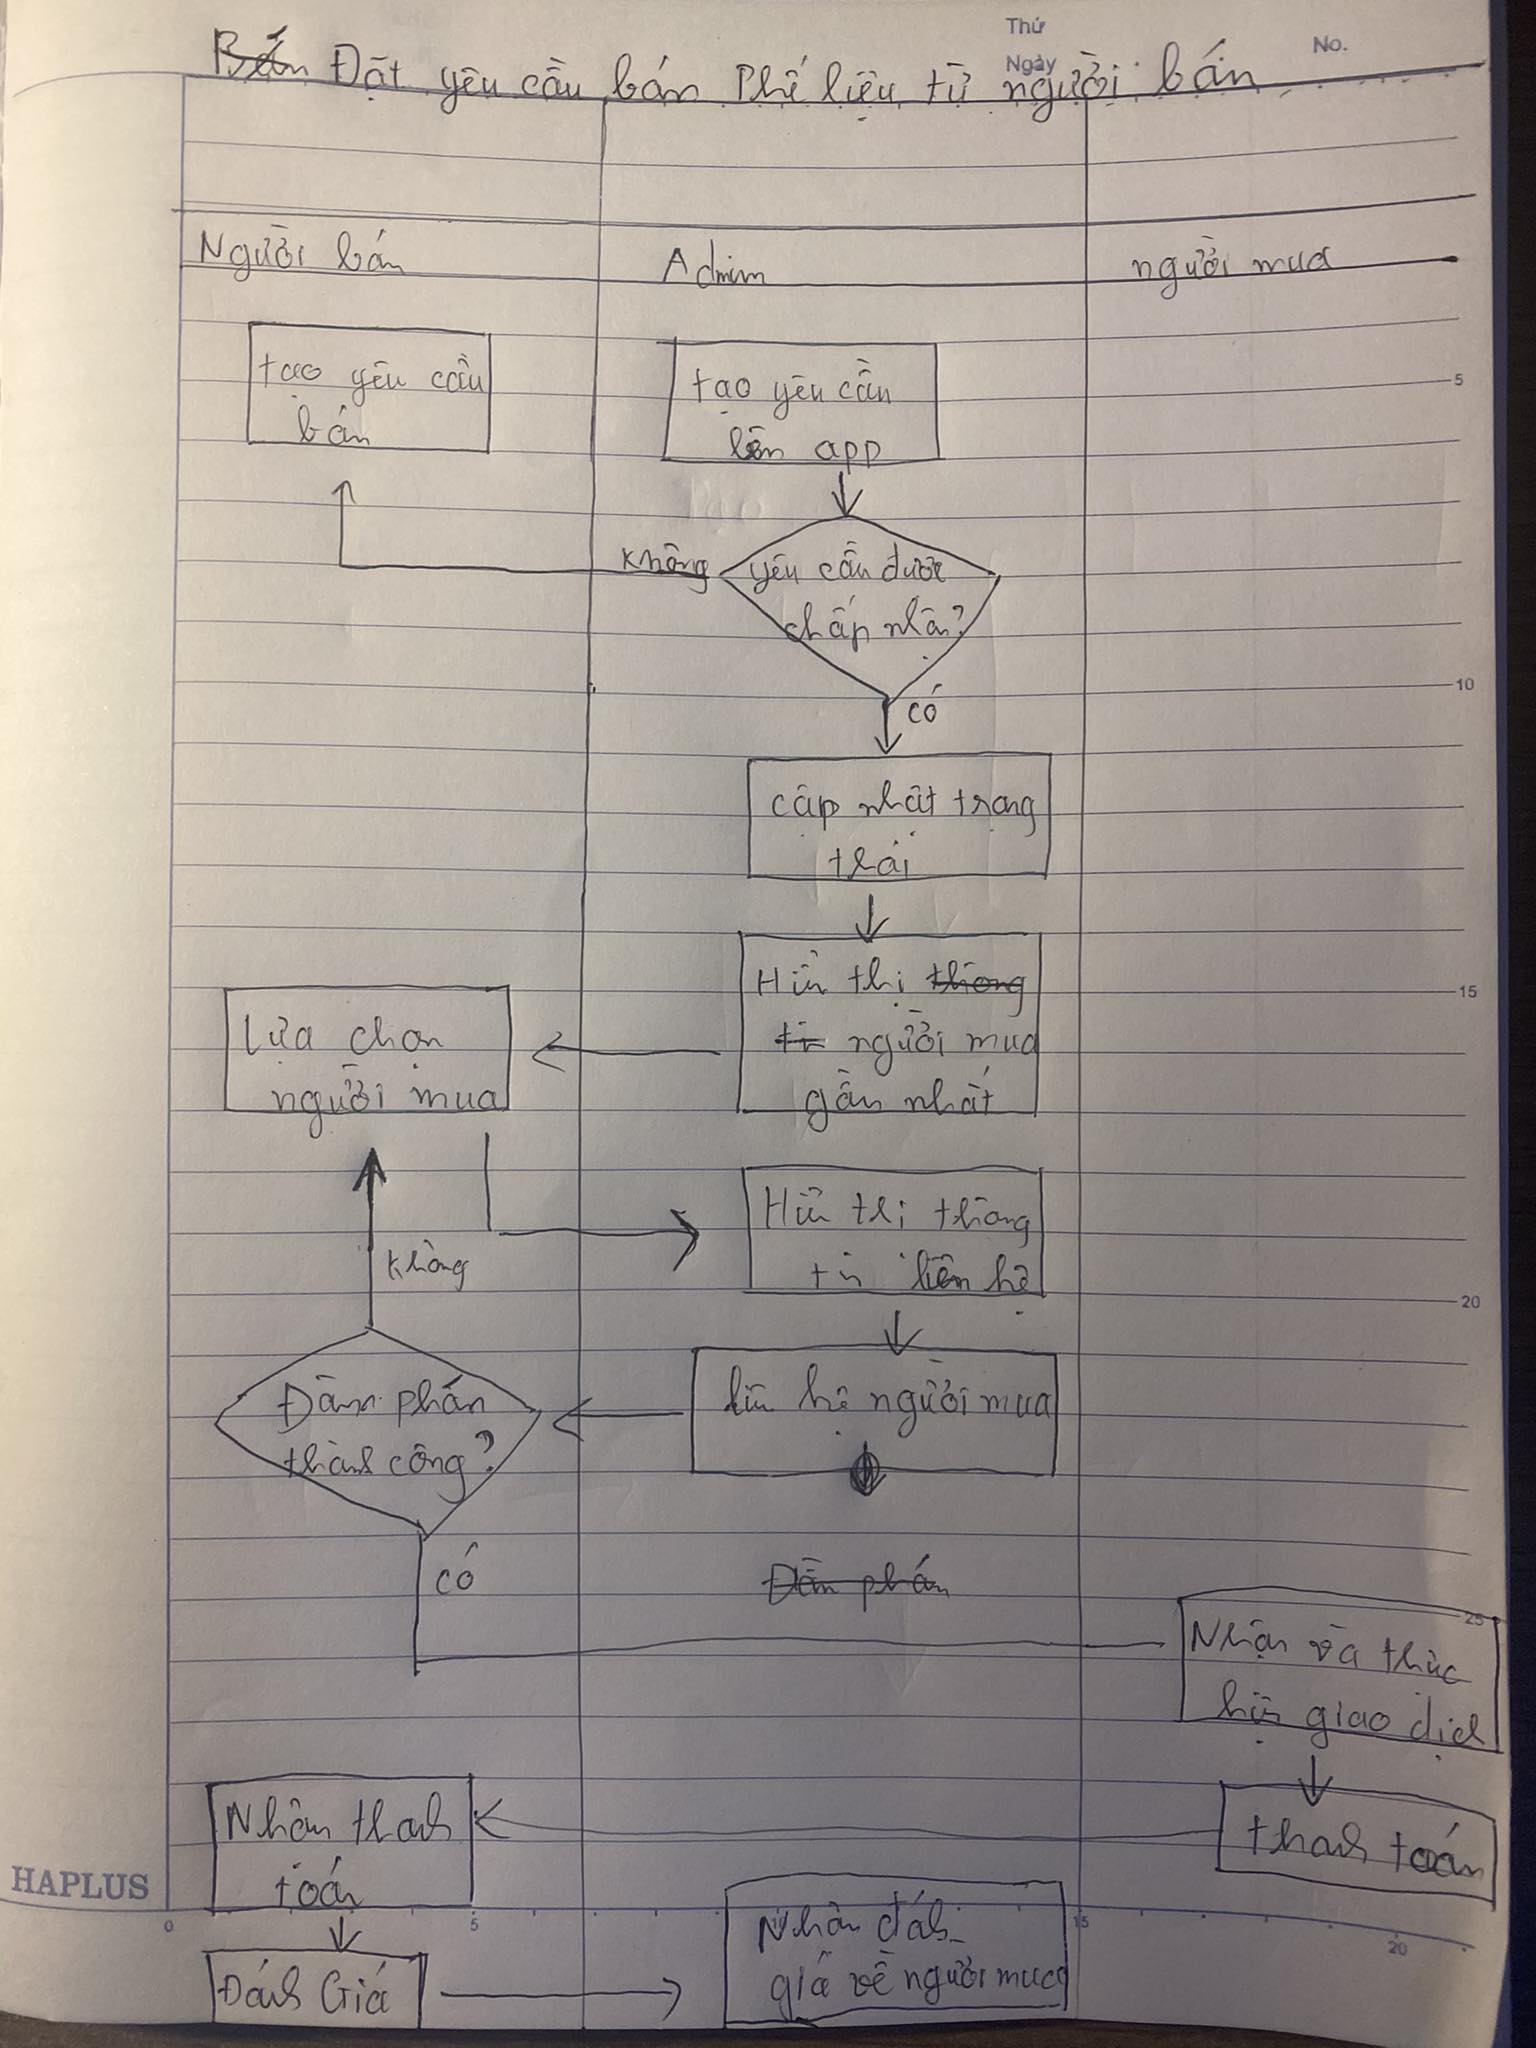 Thứ
Ngày
No.
Bán Đặt yêu cầu bán Phế liệu từ người bán
Người bán
Admin
người mua
tạo yêu cầu
bán
tạo yêu cầu
lên app
5
không
yêu cầu được
chấp nhận?
10
có
cập nhật trạng
thái
Hiển thị thông
tin người mua
gần nhất
15
Lựa chọn
người mua
Hiển thị thông
tin liên hệ
20
không
Đàm phán
thành công?
liên hệ người mua
có
Đàm phán
25
Nhận và thực
hiện giao dịch
Nhận thanh
toán
thanh toán
HAPLUS
0
5
15
20
Nhận đánh
giá về người mua
Đánh Giá